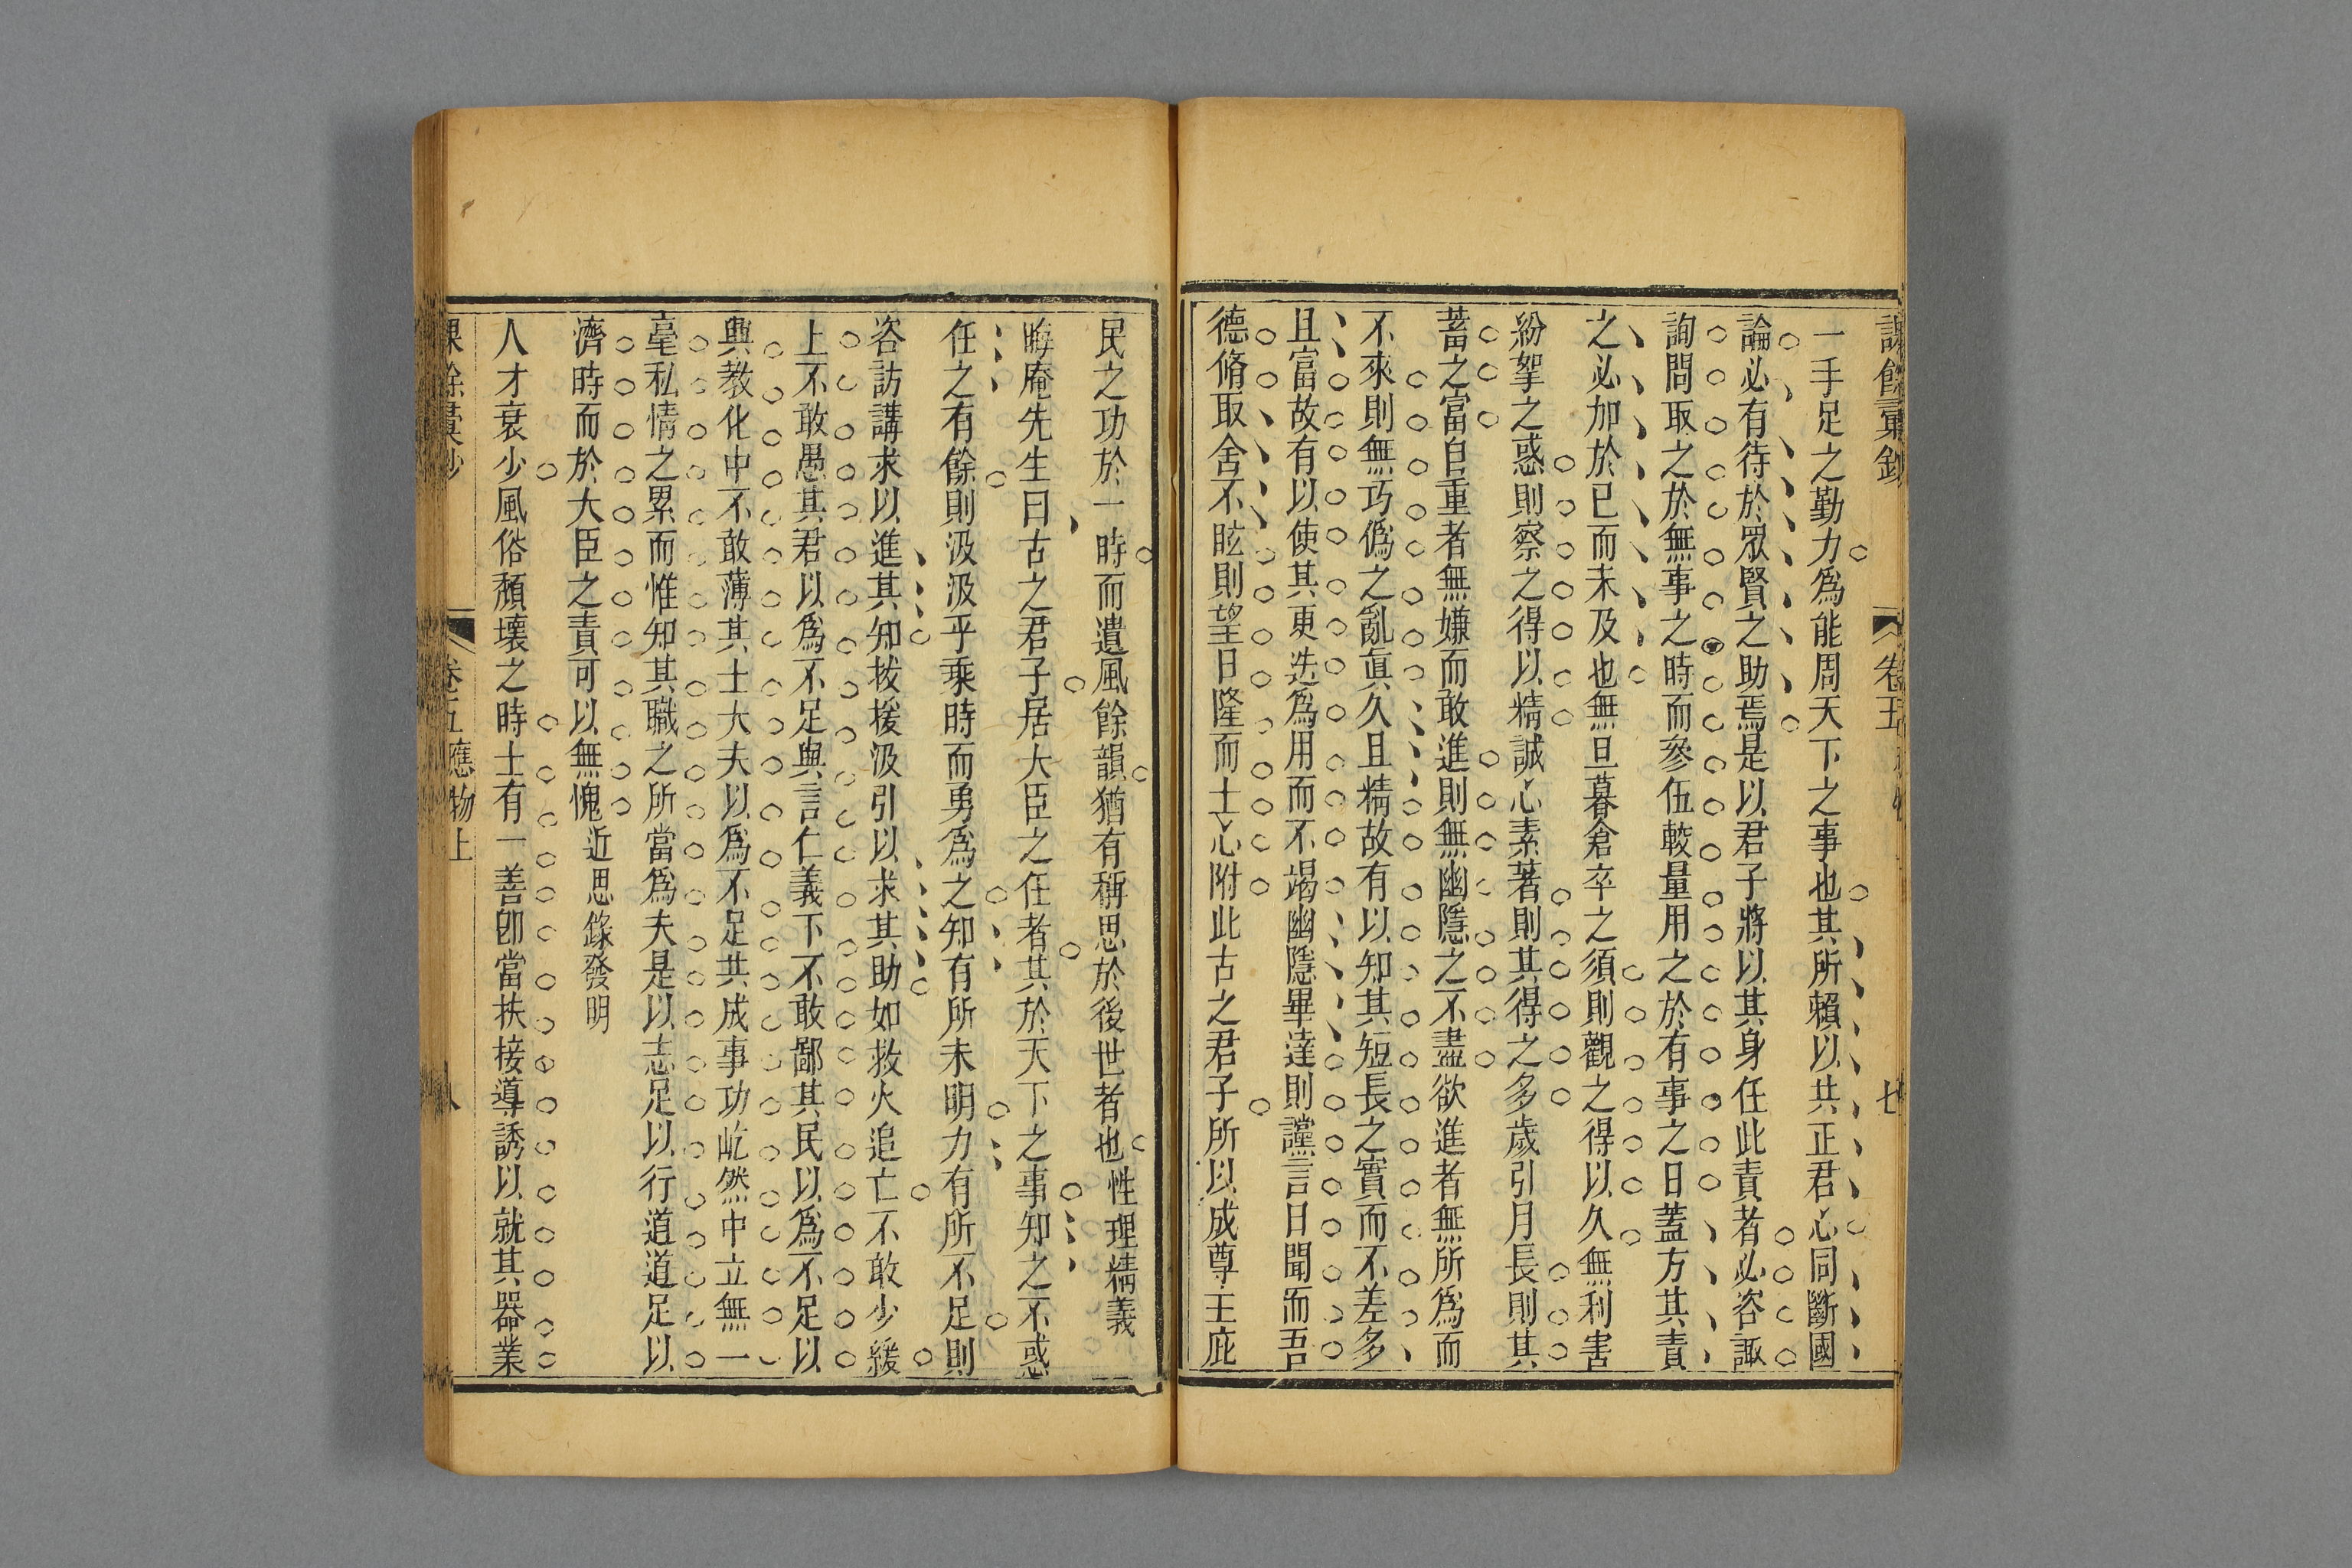 課餘彙鈔 卷五 七
一手足之勤力爲能周天下之事也其所賴以共正君心同斷國
論必有待於眾賢之助焉是以君子將以其身任此責者必咨諏
詢問取之於無事之時而參伍較量用之於有事之日蓋方其責
之必加於已而未及也無旦暮倉卒之須則觀之得以久無利害
紛挐之惑則察之得以精誠心素著則其得之多歲引月長則其
蓄之富自重者無嫌而敢進則無幽隱之不盡欲進者無所爲而
不來則無巧僞之亂眞久且精故有以知其短長之實而不差多
且富故有以使其更迭爲用而不竭幽隱畢達則讜言日聞而吾
德脩取舍不眩則望日隆而士心附此古之君子所以成尊主庇
民之功於一時而遺風餘韻猶有稱思於後世者也性理精義
晦庵先生曰古之君子居大臣之任者其於天下之事知之不惑
任之有餘則汲汲乎乘時而勇爲之知有所未明力有所不足則
咨訪講求以進其知拔援汲引以求其助如救火追亡不敢少緩
上不敢愚其君以爲不足與言仁義下不敢鄙其民以爲不足以
興教化中不敢薄其士大夫以爲不足共成事功屹然中立無一
毫私情之累而惟知其職之所當爲夫是以志足以行道道足以
濟時而於大臣之責可以無愧近思錄發明
人才衰少風俗頹壞之時士有一善卽當扶接導誘以就其器業
課餘彙鈔 卷五應物上 八